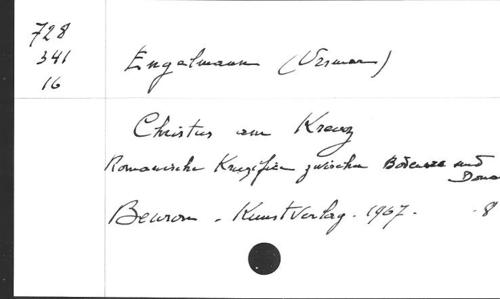 728
341
16
Engelmann (Ursmar)
Christus am Kreuz
Romanische Kruzifixe zwischen Bodensee und
Donau
Beuron. Kunstverlag. 1967. 8